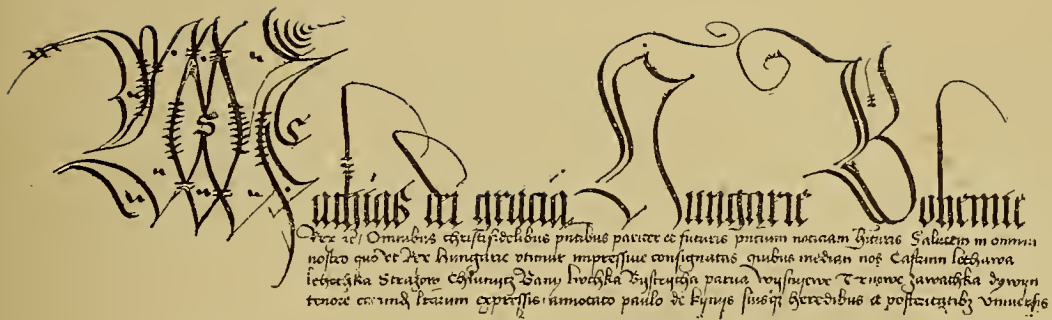 Mathias dei gracia Hungarie Bohemie
Rex etc Omnibus christifidelibus pntibus pariter et futuris pncium noticiam hituris Salutem in omnium
nostro quo et Rex Hungarie vtimur impressiue consignatas quibus median nos Castrum lethawa
lethochka Strazow Bany lwchka Bystrycha parua Trnowe zawathka
tenore earund lrarum expressis annotato paulo de kynys suisq heredibus et posteritatibz vniuersis